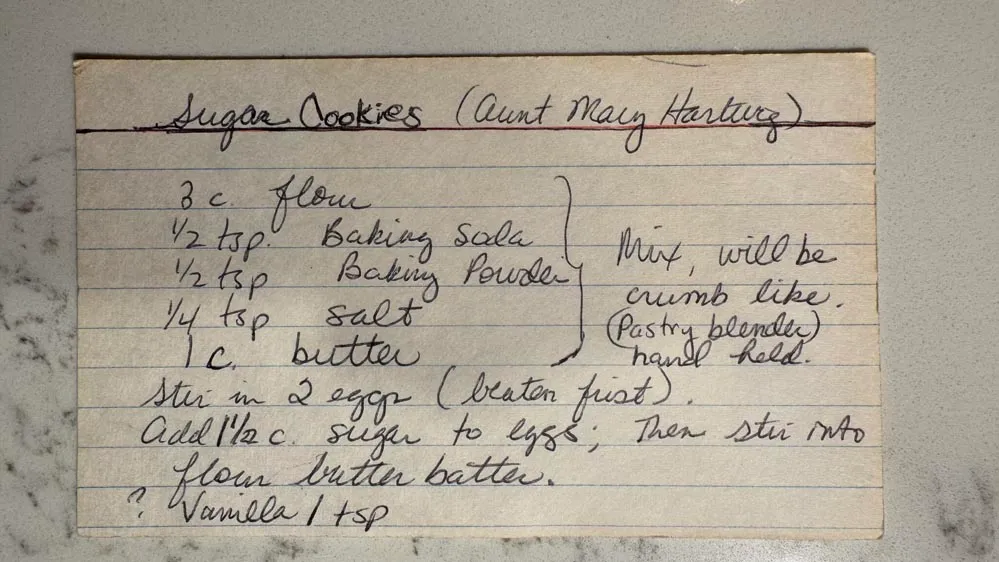 Sugar Cookies (Aunt Mary Hartwig)
3 c. flour
1/2 tsp. Baking Soda
1/2 tsp Baking Powder
1/4 tsp salt
1 c. butter
Mix, will be
crumb like.
(Pastry blender)
hand held.
Stir in 2 eggs (beaten first).
Add 1 1/2 c. sugar to eggs; Then stir into
flour butter batter.
? Vanilla 1 tsp